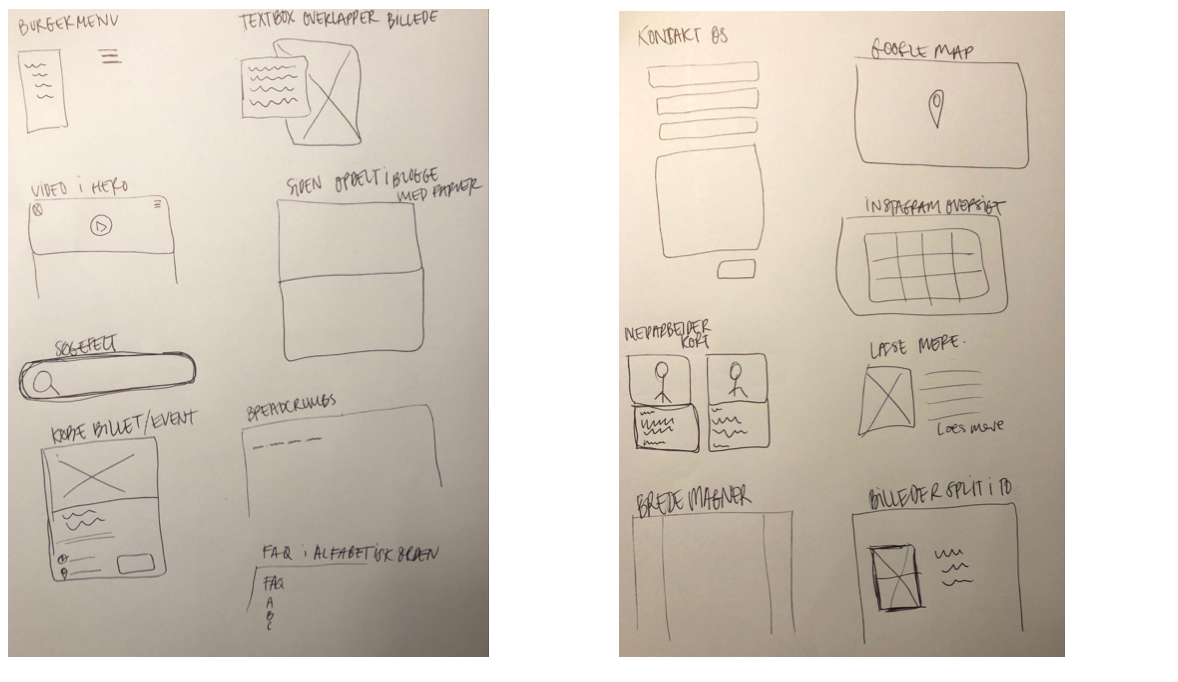 BURGERMENU
TEXTBOX OVERLAPPER BILLEDE
VIDEO I HERO
SIDEN OPDELT I BLOGGE
MED FARVER
SØGEFELT
KØBE BILLET/EVENT
BREADCRUMBS
FAQ I ALFABETISK ORDEN
FAQ
A
B
C
KONTAKT OS
GOOGLE MAP
INSTAGRAM OVERSIGT
MEDARBEJDER
KORT
LÆSE MERE.
Læs mere
BREDE MAGNER
BILLEDER SPLIT I TO